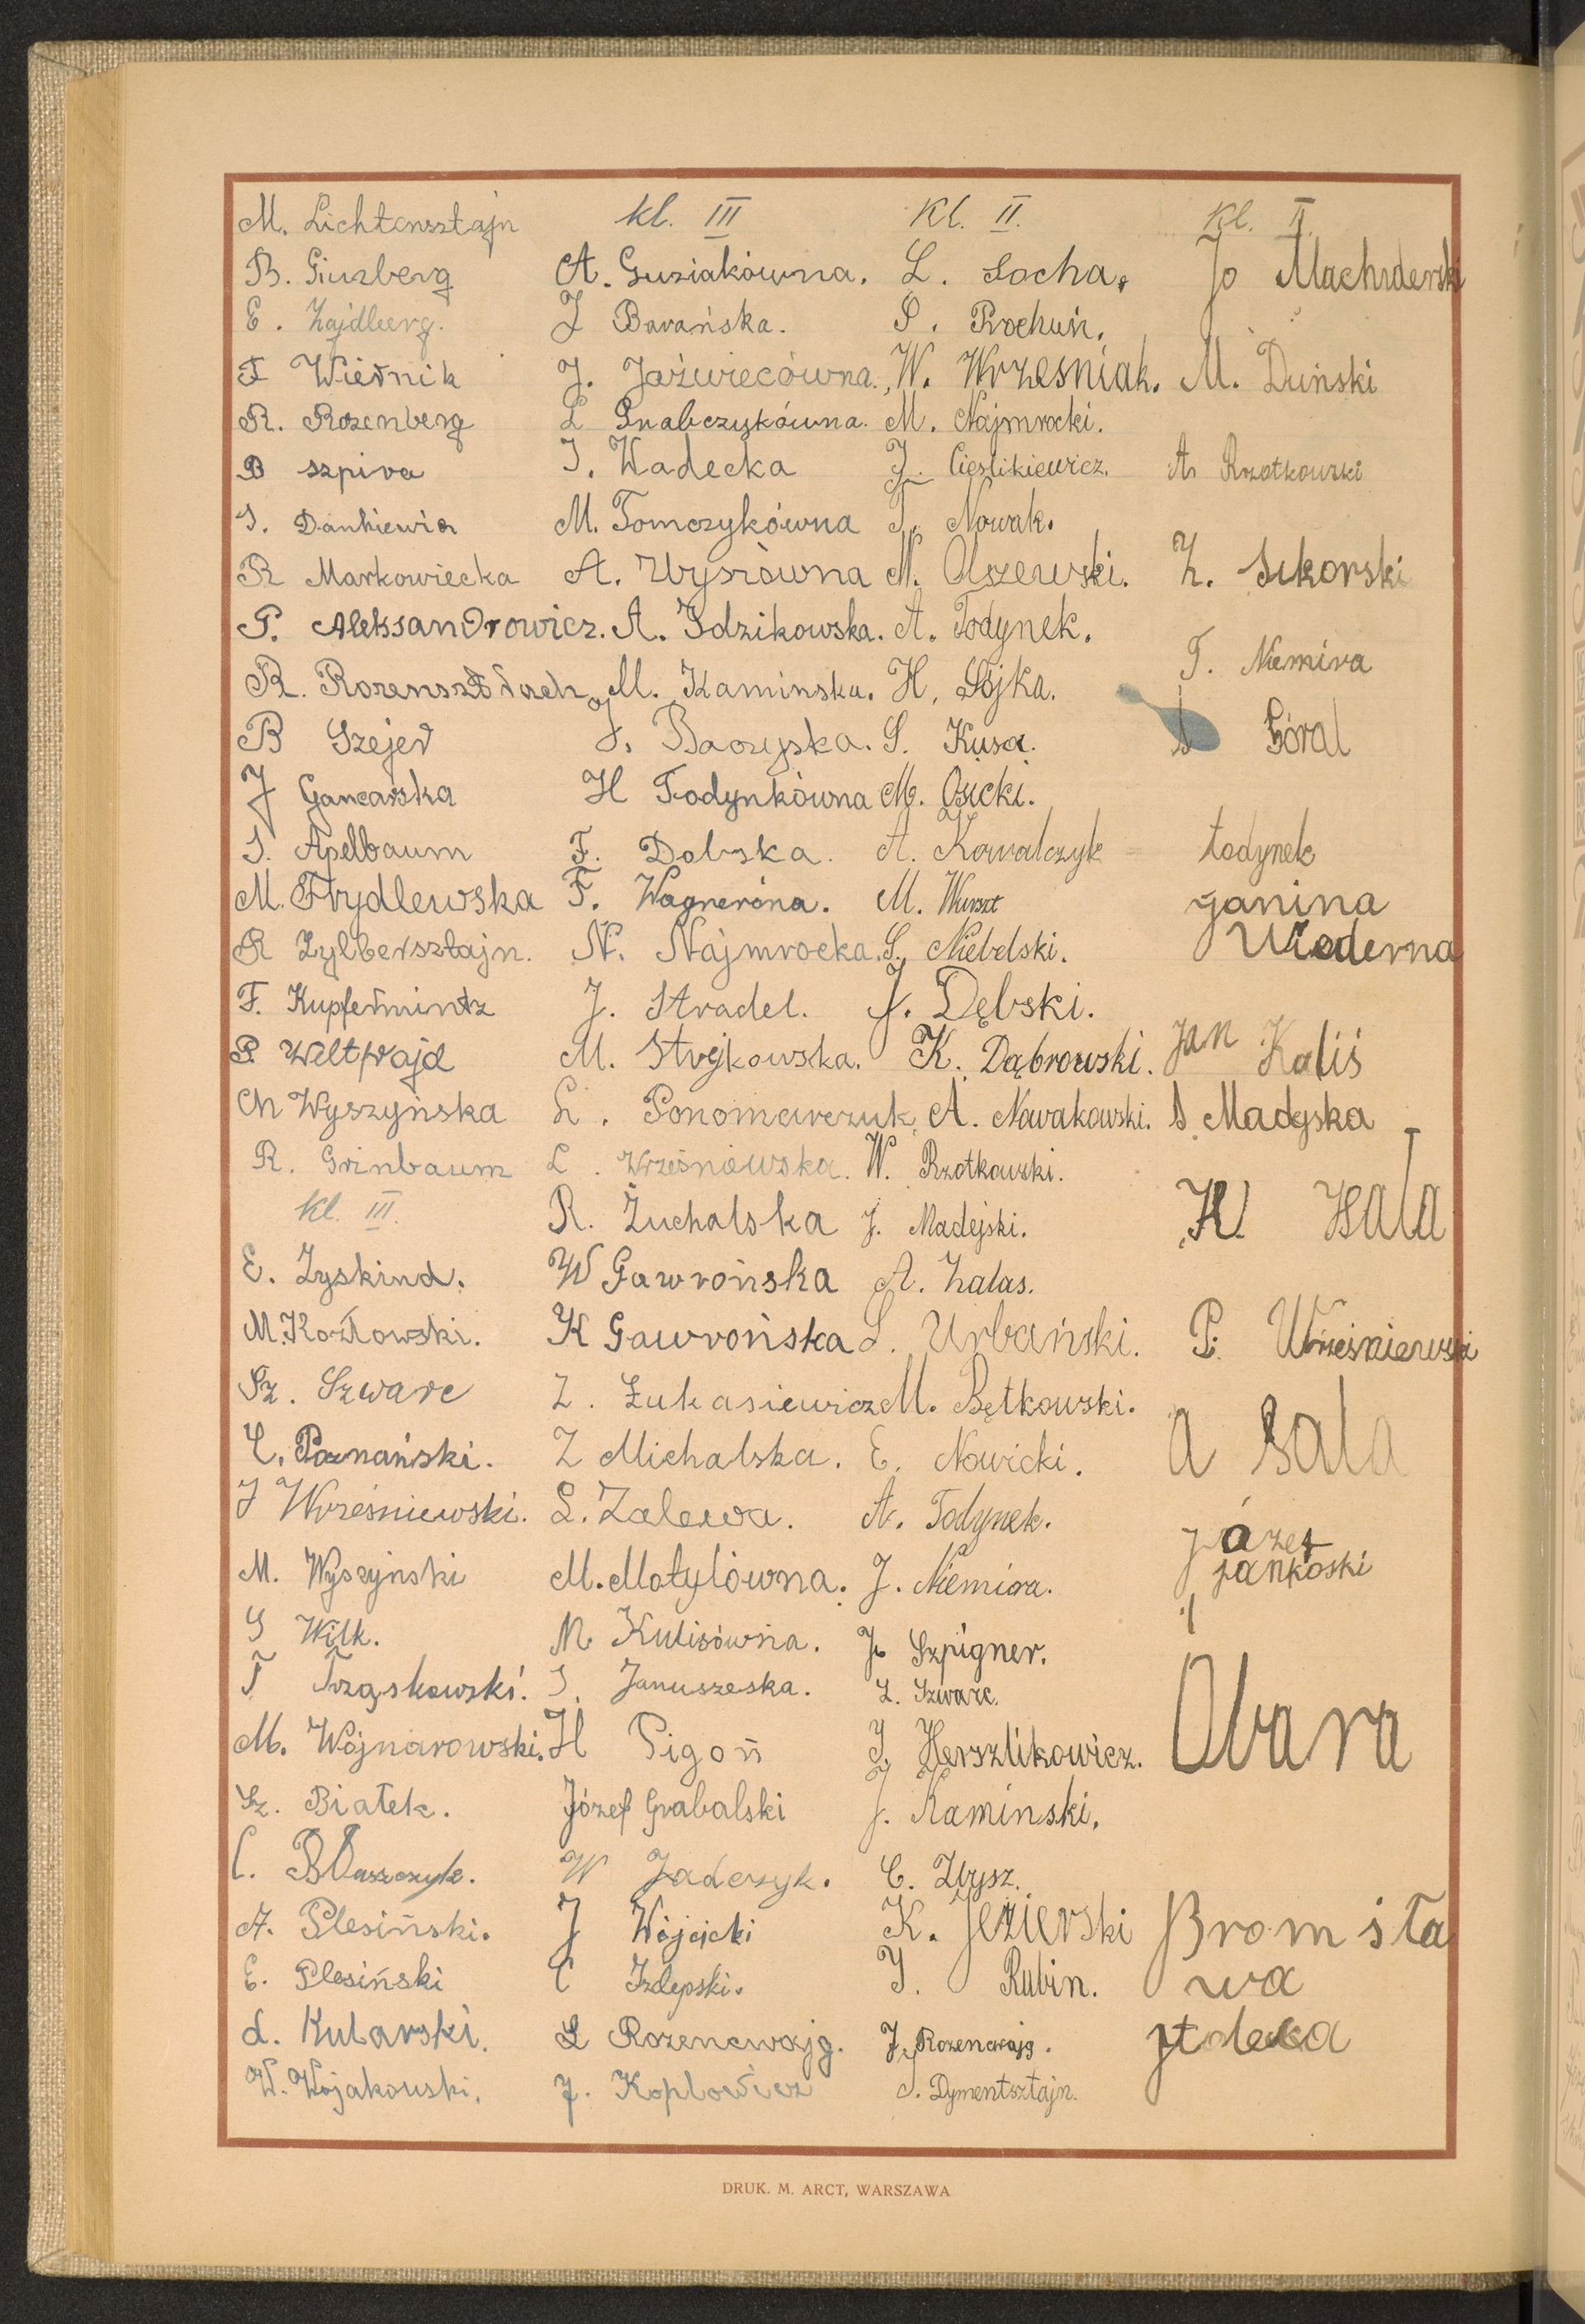 M. Lichtensztajn
B. Ginzberg
E. Zajdberg.
F Wiernik
R. Rozenberg
B szpiva
S. Dankiewicz
R Markowiecka
P. Aleksandrowicz.
R.
B Szejer
J Gancarska
S. Apelbaum
M. Frydlewska
R Zylbersztajn.
F. Kupfermintz
P. Weltfrajd
Ch Wyszyńska
R. Grinbaum
kl. III.
E. Zyskind.
M. Kozłowski.
Sz. Szwarc
C. Poznański.
J Wrześniewski.
M. Wyszyński
S Wilk.
T Trząskowski.
M. Wojnarowski.
Sz. Białek.
C. Błaszczyk.
A. Plesiński.
E. Plesiński
L. Kubarski.
W. Wojakowski.
kl. III
A. Guziakówna.
J Barańska.
J. Jaźwiecówna.
L Grabczykówna.
J. Wadecka
M. Tomczykówna
A. Wysrówna
A. Idzikowska.
M. Kaminska.
J. Baczyska.
H Todynkówna
F. Dobska.
F. Wagneróna.
N. Najmrocka.
J. Stradel.
M. Stryjkowska.
L. Ponomarczuk
L. Wrześniewska.
R. Żuchalska
W Gawrońska
K Gawrońska
Z. Łukasiewicz
Z Michalska.
L. Zalewa.
M. Motylówna.
M Kulisówna.
S. Januszeska.
H Pigoń
Józef Grabalski
W Jaderzyk.
J Wójcicki
C Izdepski.
L Rozencwajg.
J. Koplowicz
Kl. II.
L. Socha.
S. Prochuń.
W. Wrzesniak.
M. Najmrocki.
J. Cieslikiewicz.
T. Nowak.
M. Olszewski.
A. Todynek.
H. Sójka.
S. Kusa.
M. Osicki.
A. Kowalczyk
M. Wurszt
S. Niebelski.
J. Dębski.
K. Dąbrowski.
A. Nowakowski.
W. Rzotkowski.
J. Madejski.
A. Zalas.
S. Urbański.
M. Bętkowski.
E. Nowicki.
A. Todynek.
J. Niemira.
J. Szpigner.
L. Szwarc.
J. Herszlikowicz.
J. Kaminski.
C. Zbysz.
K. Jezierski
J. Rubin.
J. Rozencwajg.
S. Dymentsztajn.
Kl. II.
Jo
M. Duński
A. Rzotkowski
Z. Sikorski
T. Niemira
S Góral
todynek
janina
Wioderna
Jan Kaliś
S. Madyska
K Hala
P. Wrześniewski
a Sala
józef
jankoski
Obara
Bromisła
wa
DRUK. M. ARCT, WARSZAWA